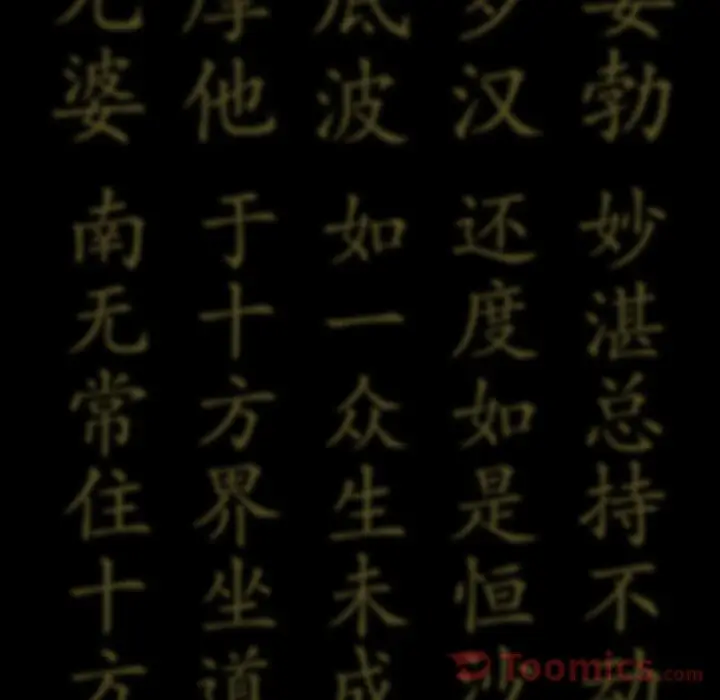 勃
汉
底波
他
婆
妙湛总持不
还度如是恒沙
如一众生未成
于十方界坐道
南无常住十方
Toomics.com